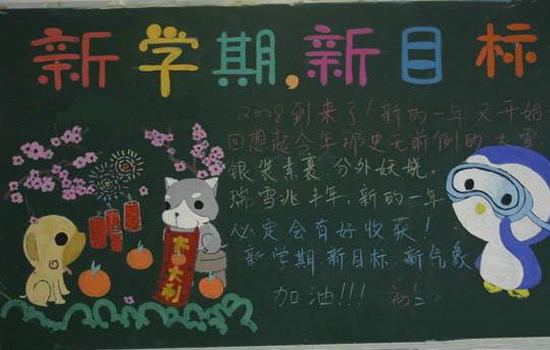 新学期,新目标
2008到来了!新的一年又开始
回想起今年那史无前例的大雪
银装素裹 分外妖娆。
瑞雪兆丰年,新的一年
必定会有好收获!
新学期 新目标 新气象
加油!!! 初
大利